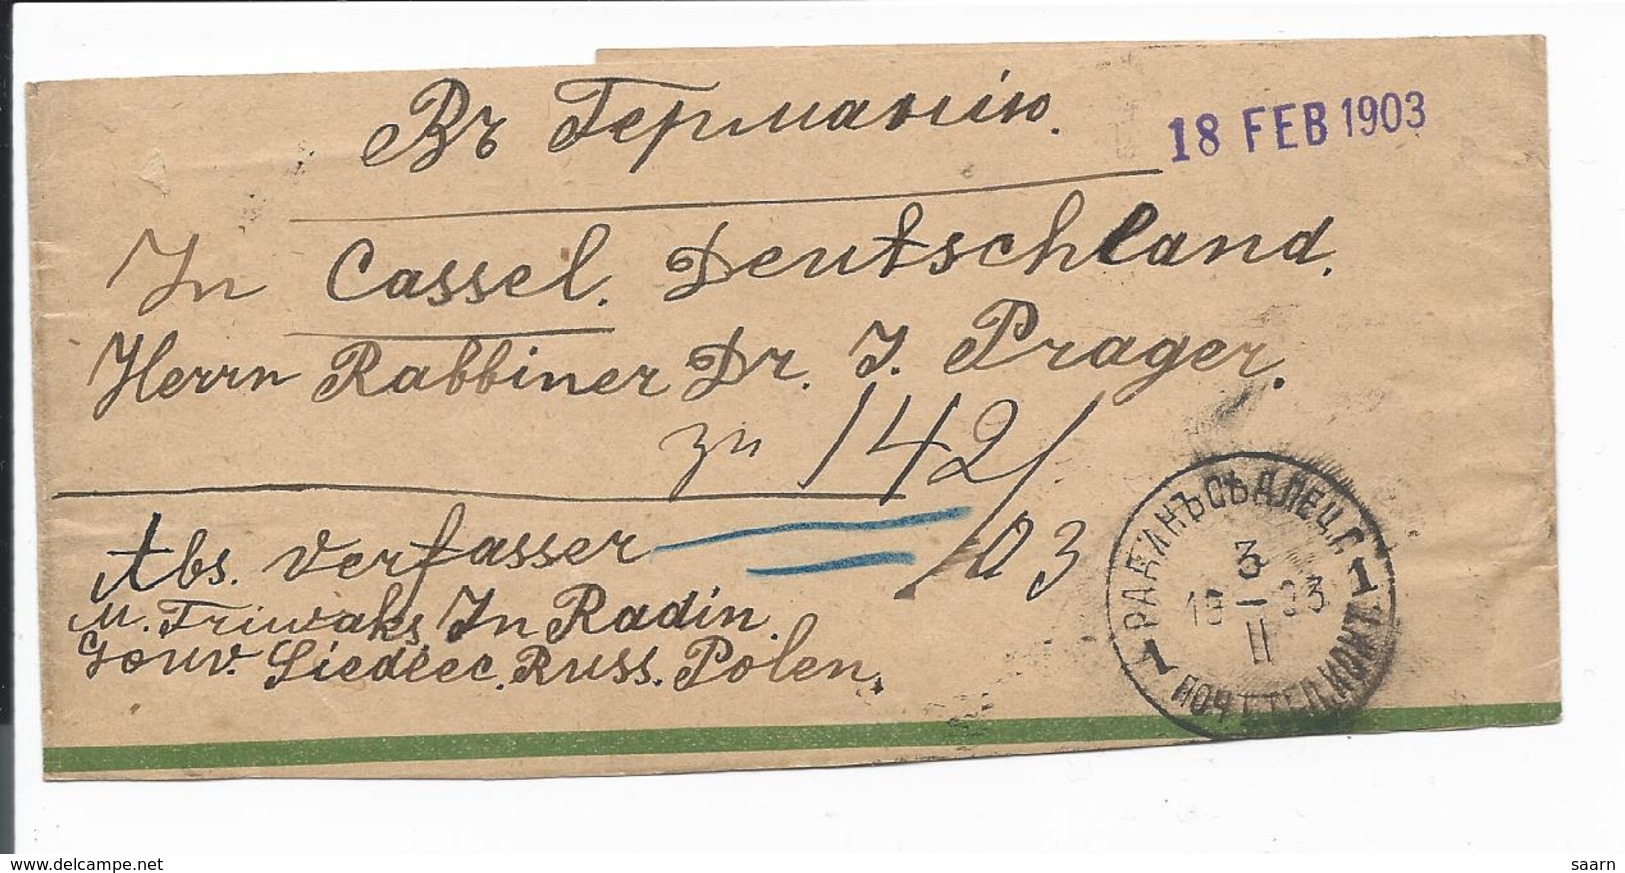 Въ Германію.
18 FEB 1903
In Cassel. Deutschland.
Herrn Rabbiner Dr. J. Prager.
zu 142/
03
Abs. Verfasser
M. Triwaks In Radin.
Gouv. Siedlec. Russ. Polen.
РАДИНЪ СѢДЛЕЦ. Г.
3
1903
II
1 1
ПОЧ. ТЕЛ. КОНТ.
delcampe.net
saarn